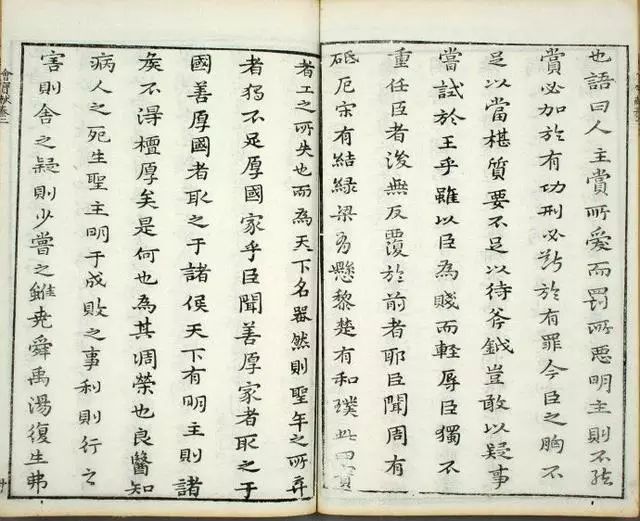 也語曰人主賞所愛而罰所悪明主則不然
賞必加於有功刑必斷於有罪今臣之胸不
足以當椹質要不足以待斧鉞豈敢以疑事
嘗試於王乎雖以臣為賤而輕辱臣獨不
重任臣者後無反覆於前者耶臣聞周有
砥厄宋有結緑梁有懸黎楚有和璞此四寳
者工之所失也而為天下名器然則聖王之所弃
者獨不足厚國家乎臣聞善厚家者取之于
國善厚國者取之于諸侯天下有明主則諸
侯不得檀厚矣是何也為其凋榮也良醫知
病人之死生聖主明于成敗之事利則行之
害則舍之疑則少嘗之雖尭舜禹湯復生弗